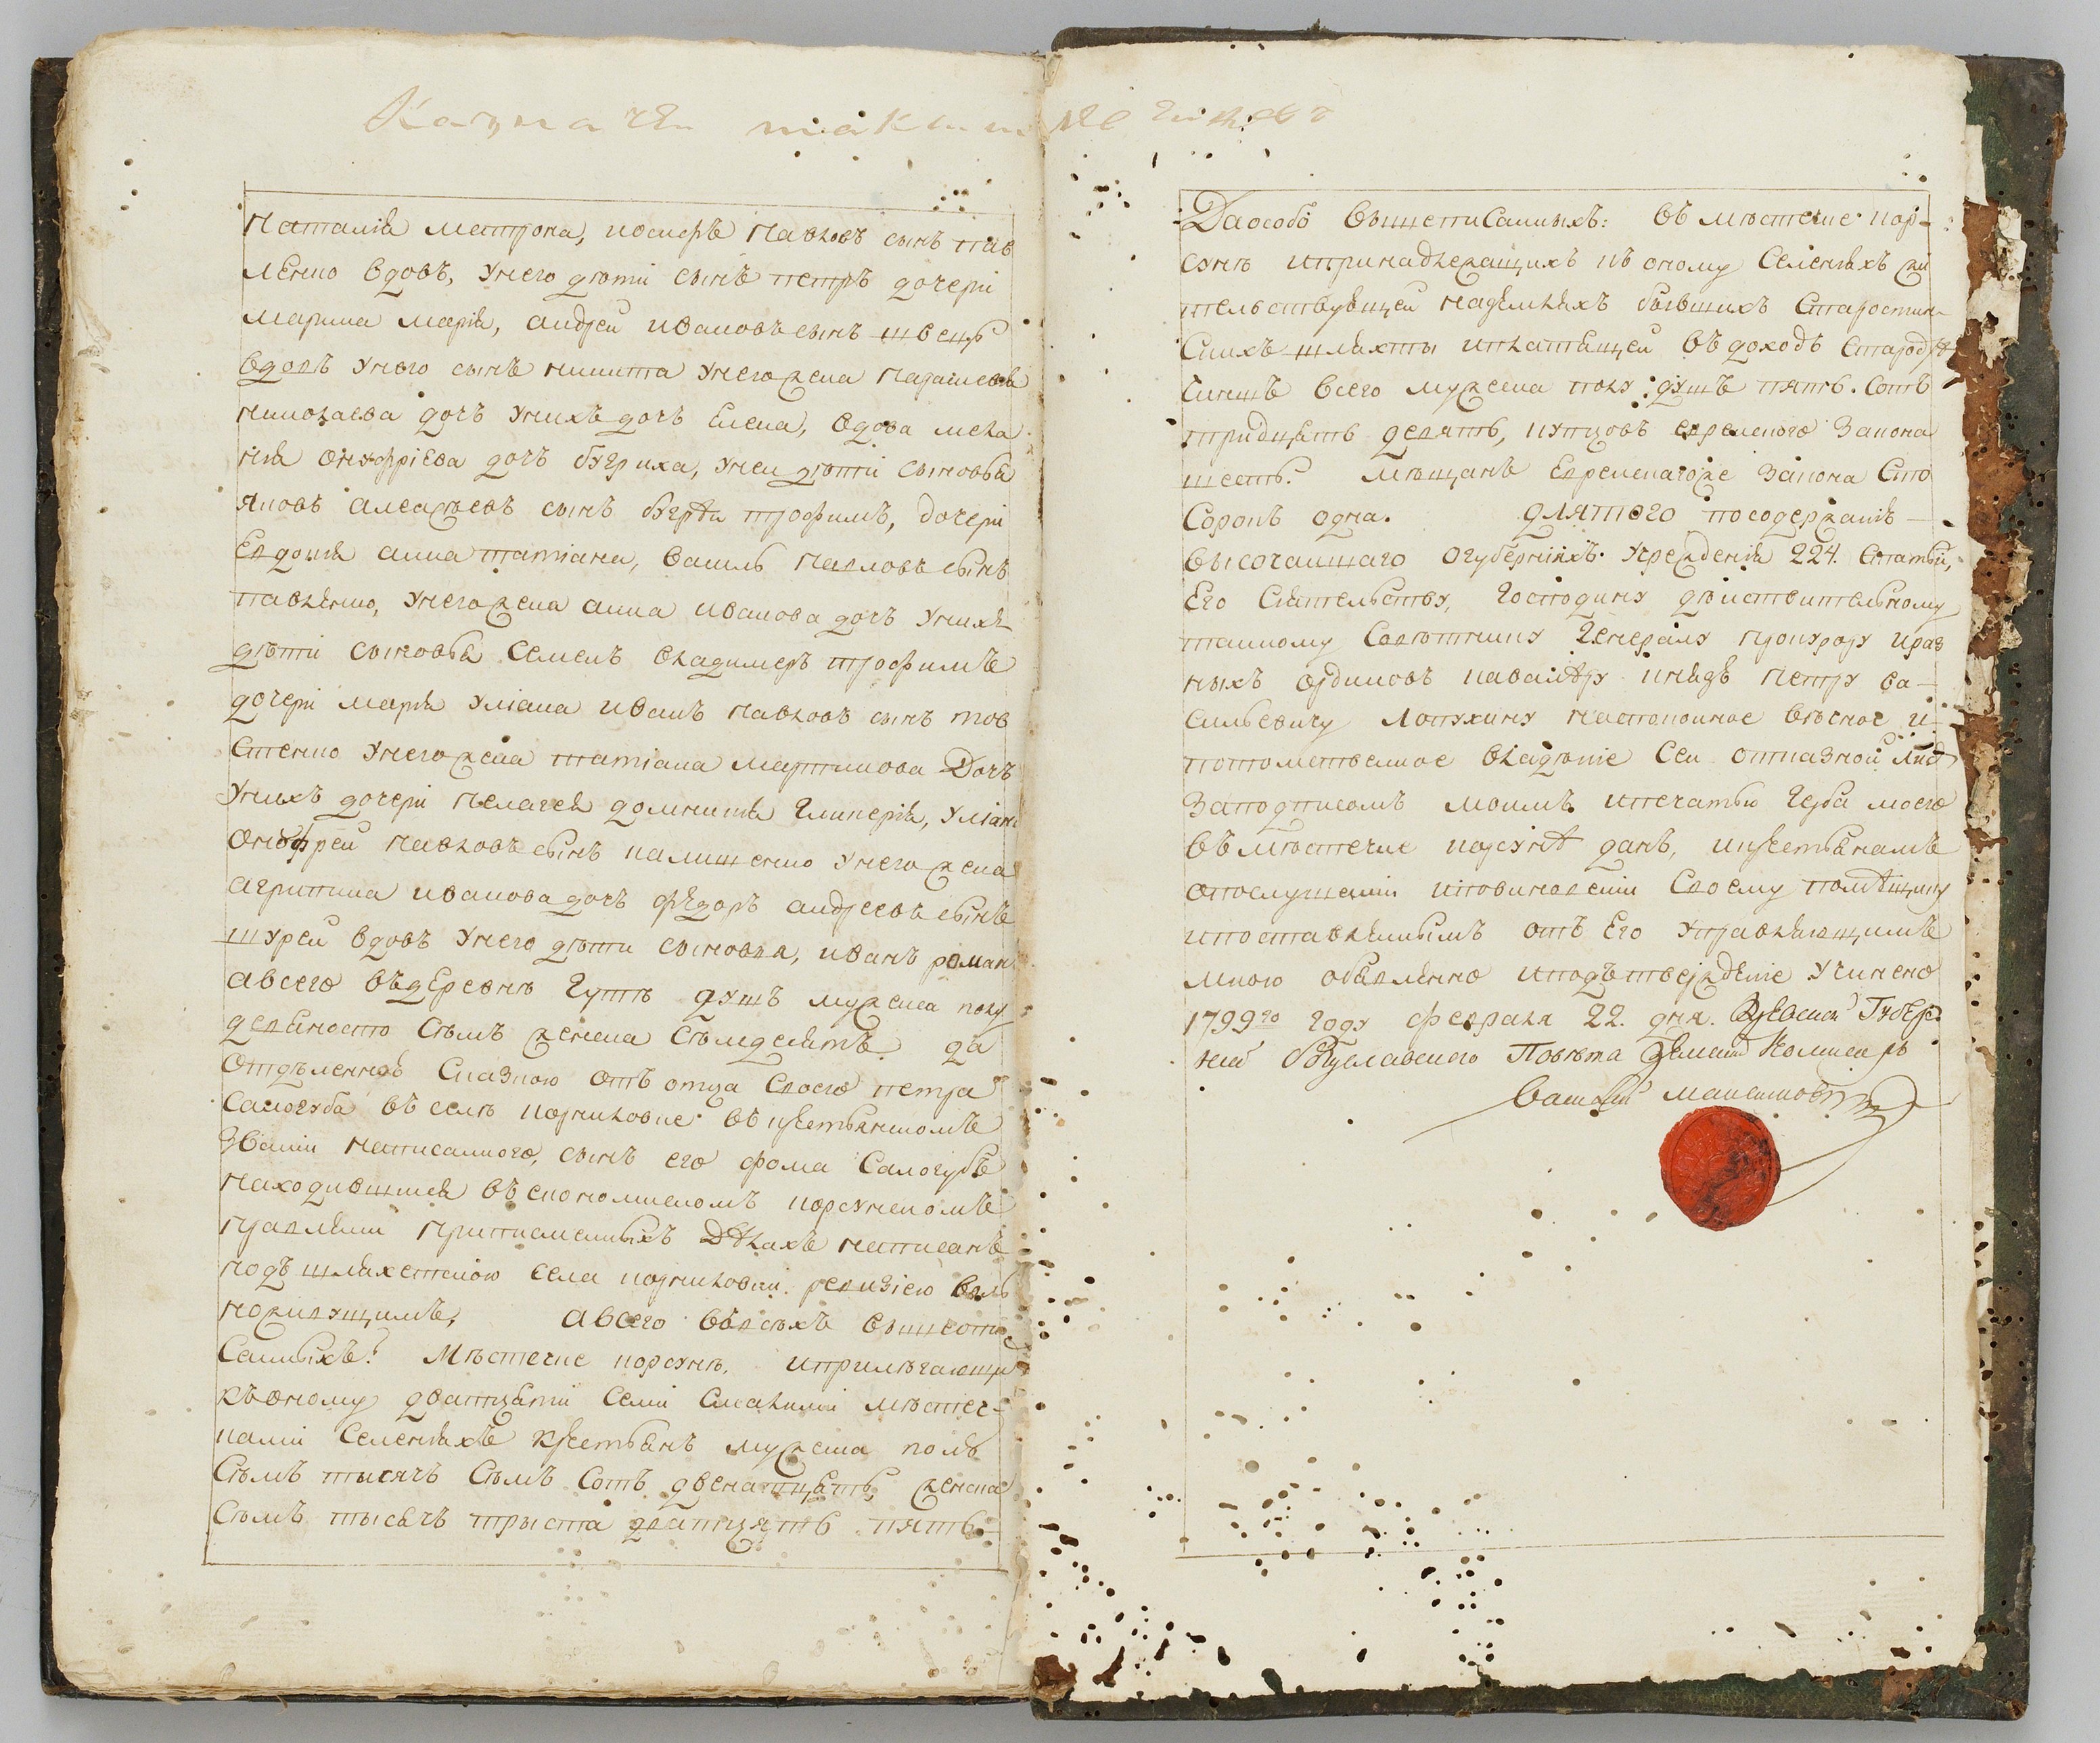 Казначей
Наталия Матрона, иосифъ Павловъ сынъ пав
ленко вдовъ, Унего дѣти сынъ петръ дочери
марина мария, андреи ивановъ сынъ швецъ
вдовъ Унего сынъ никита Унего жена
николаева дочъ Унихъ дочъ Елена, вдова мела
ния онуфриева дочъ бугриха, Унеи дѣти сыновья
яковъ алеѯѣевъ сынъ трофимъ, дочери
Евдокия анна татиана, василь Павловъ сынъ
павленко, Унего жена анна иванова дочъ Унихъ
дѣти сыновья Семенъ владимеръ трофимъ
дочери мария Улиана иванъ Павловъ сынъ тов
стенко Унего жена татиана мартинова Дочъ
Унихъ дочери пелагея домникия Гликерия, Улиана
Онуфреи Павловъ сынъ калишенко Унего жена
агрипина иванова дочъ ѳедоръ андреевъ сынъ
шурей вдовъ Унего дѣти сыновья, иванъ роман
авсего въдеревнѣ Гутѣ душъ мужеска полу
девяносто Семъ женска Семдесятъ. да
Отдѣленной Сказкою отъ отца Своего петра
Самогуба въ селѣ корниловке въ крестьянскомъ
Звании написаннаго, сынъ его фома Самогубъ
находившийся въ економическомъ корсунскомъ
правлении при писменныхъ Дѣлахъ написанъ
подъ шляхетскою села корниловки ревизиею
нежидущимъ, авсего въвсѣхъ вышепи
Санныхъ: Мѣстечке корсунѣ, иприлѣгающи
къоному дватцати Семи Смалыми мѣстеч-
ками Селенияхъ крестьянъ мужеска полъ
Семъ тысячъ Семъ Сотъ двенатцать, женска
Семъ тысячъ триста двадцять пять
Даособо вышеписанныхъ: въ мѣстечке кор-
сунѣ ипринадлежащихъ къ оному Селенияхъ жи
тельствующей наземляхъ бывшихъ Старостин
Скихъ шляхты иплатящей въ доходъ
Чиншъ всего мужеска полу душъ пять Сотъ
тридцать девять, купцовъ евреискаго Закона
шесть. Мѣщанъ Евреискагоже Закона Сто
Сорокъ одна. для того посодержанию
высочаишаго Огубернияхъ Учреждения 224. Статьи,
Его Сиятельству, Господину дѣиствительному
таиному Совѣтнику Генералъ прокурору ираз
ныхъ ординовъ кавалеру князю Петру ва-
сильевичу Лопухину Наспокоиное вѣчное и
потомственное владѣние Сеи отказной Лист
Заподписомъ моимъ ипечатью Герба моего
въ мѣстечке корсунѣ данъ, икрестьянамъ
опослушании иповиновении Своему помѣщику
ипоставленнымъ отъ Его Управляющимъ
мною объявленно иподътверждение Учинено
1799го Году февраля 22. дня. Киевской Губер
нии богуславского Повѣта Земский Комисаръ
Василий